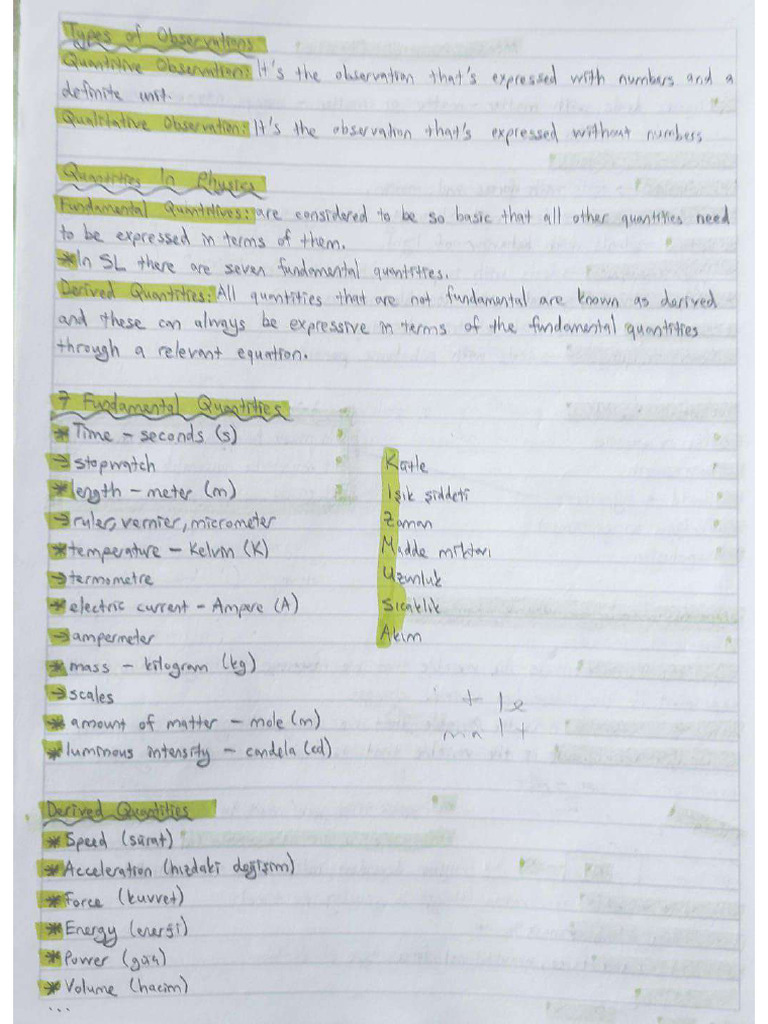 Types of Observations
Quantitive Observation: It's the observation that's expressed with numbers and a
definite unit.
Qualitative Observation: It's the observation that's expressed without numbers
Quantities In Physics
Fundamental Quantitives: are considered to be so basic that all other quantities need
to be expressed in terms of them.
*In SL there are seven fundamental quantities.
Derived Quantities: All quantities that are not fundamental are known as derived
and these can always be expressive in terms of the fundamental quantities
through a relevant equation.
7 Fundamental Quantities
*Time - seconds (s)
→stopwatch
*length - meter (m)
→ruler, vernier, micrometer
*temperature - Kelvin (K)
→termometre
*electric current - Ampere (A)
→ampermeter
*mass - kilogram (kg)
→scales
*amount of matter - mole (m)
*luminous intensity - candela (cd)
Kütle
Işık şiddeti
Zaman
Madde miktarı
Uzunluk
Sıcaklık
Akım
Derived Quantities
*Speed (sürat)
*Acceleration (hızdaki değişim)
*Force (kuvvet)
*Energy (enerji)
*Power (güç)
*Volume (hacim)
...